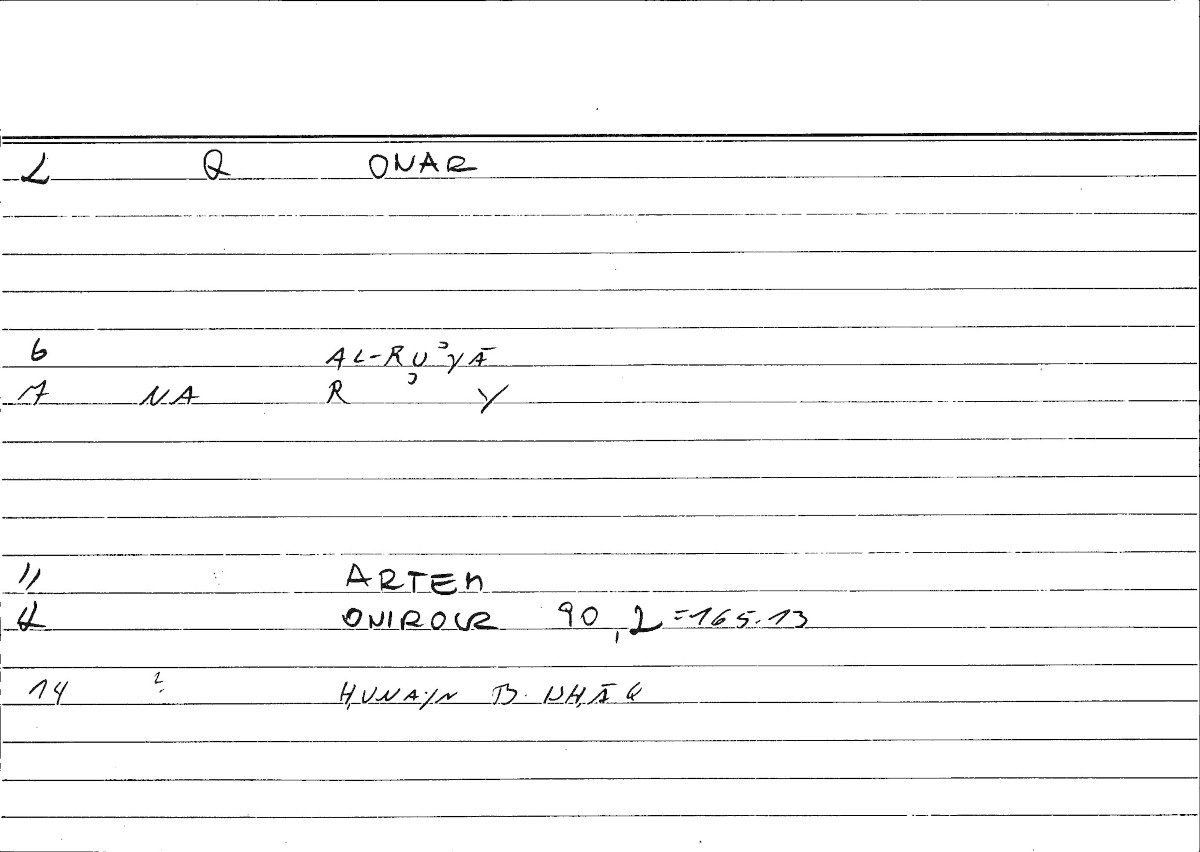 2 Q ONAR
6 AL-RUʾYĀ
7 NA R ʾ Y
11 ARTEM
12 ONIROCR 90,2=165.13
14 2 ḤUNAYN B. ISḤĀQ